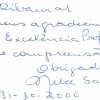 Ribamar
meus agradecime
Excelência Prof
e compreensão
Obrigada
Nilce Sa
31-10-2000